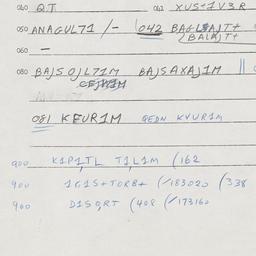 060 Q.T 062 XUS+1V3R
050 ANAGUL71 /- 042 BAGLBAJT+
060 - (BALAJT+
080 BAJSOJL71M BAJSAXAJ1M ||
081 KFUR1M QEDN KVUR1M
900 K1P1TL T1L1M (162
900 1G1S+TORB+ (/183020 (338
900 D1SQRT (408 (/173160